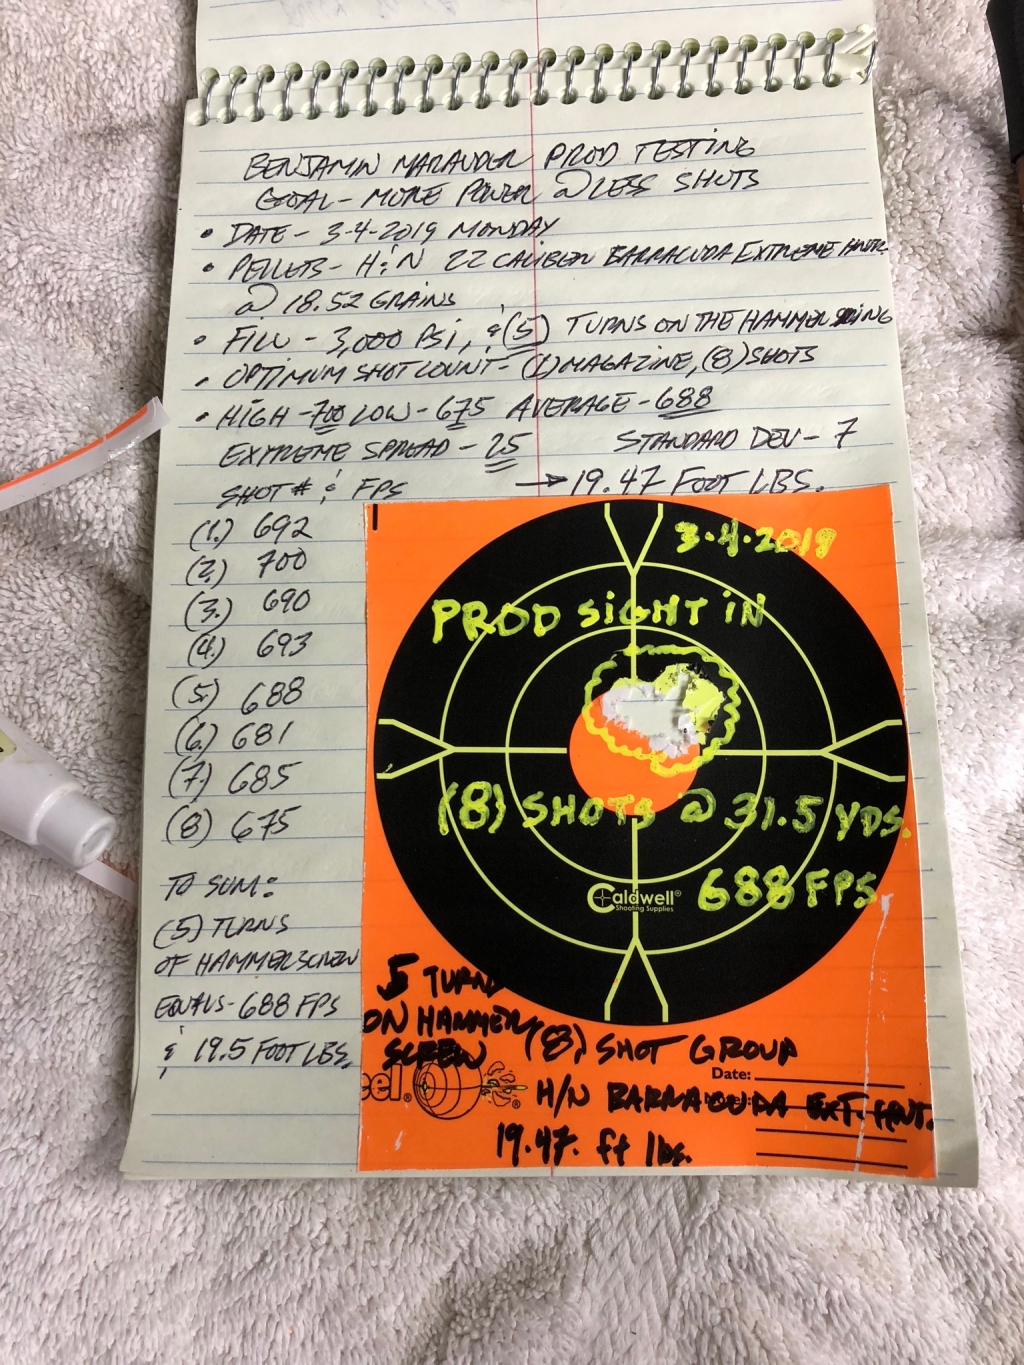 BENJAMIN MARAUDER PROD TESTING
GOAL - MORE POWER @ LESS SHOTS
• DATE - 3-4-2019 MONDAY
• PELLETS - H&N 22 CALIBER BARRACUDA EXTREME HNTR
@ 18.52 GRAINS
• FILL - 3,000 PSI, & (5) TURNS ON THE HAMMER SPRING
• OPTIMUM SHOT COUNT - (1) MAGAZINE, (8) SHOTS
• HIGH - 700 LOW - 675 AVERAGE - 688
EXTREME SPREAD - 25 STANDARD DEV - 7
SHOT # & FPS → 19.47 FOOT LBS.
(1.) 692
(2.) 700
(3.) 690
(4.) 693
(5.) 688
(6.) 681
(7.) 685
(8) 675
TO SUM:
(5) TURNS
OF HAMMER SCREW
EQUALS - 688 FPS
& 19.5 FOOT LBS.
3.4.2019
PROD SIGHT IN
(8) SHOTS @ 31.5 YDS.
688 FPS
Caldwell®
Shooting Supplies
5 TURNS
ON HAMMER
SCREW
(8) SHOT GROUP
Date:
H/N BARRACUDA EXT. HNT.
19.47. ft lbs.
eel®